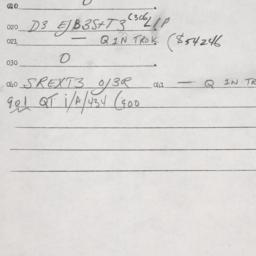 010
020 D3 EJB3S+T3 (3C6 L/P
021 — Q IN TRDK ($54246
030 0
040 SREXT3 0/3R 041 — Q IN TR
901 QT i/A/434 (900